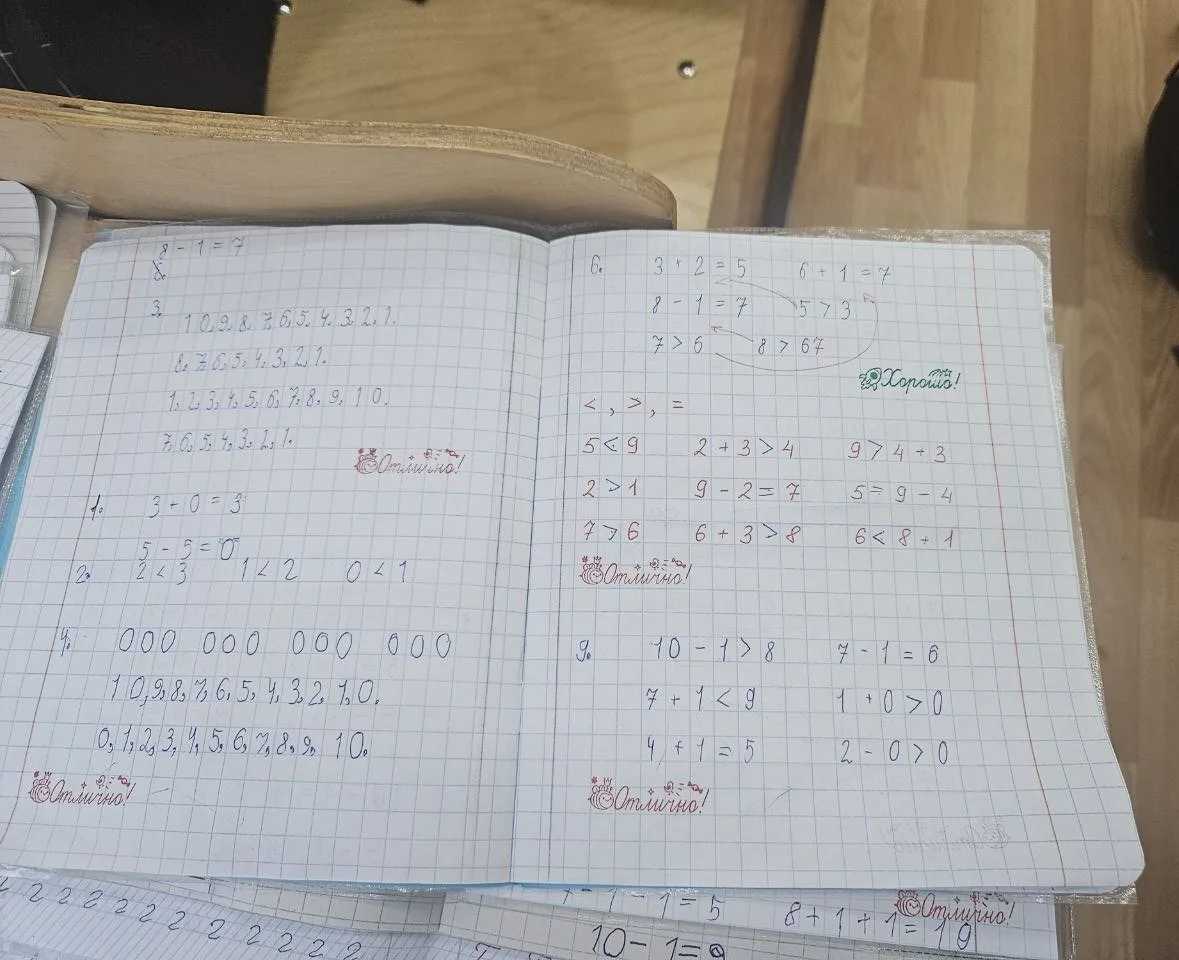 8 - 1 = 7
3.
10, 9, 8, 7, 6, 5, 4, 3, 2, 1.
8, 7, 6, 5, 4, 3, 2, 1.
1, 2, 3, 4, 5, 6, 7, 8, 9, 10.
7, 6, 5, 4, 3, 2, 1.
Отлично!
1. 3 - 0 = 3
5 - 5 = 0
2. 2 < 3 1 < 2 0 < 1
4. 000 000 000 000
10, 9, 8, 7, 6, 5, 4, 3, 2, 1, 0.
0, 1, 2, 3, 4, 5, 6, 7, 8, 9, 10.
Отлично!
6. 3 + 2 = 5 6 + 1 = 7
8 - 1 = 7 5 > 3
7 > 6 8 > 67
Хорошо!
< , > , =
5 < 9 2 + 3 > 4 9 > 4 + 3
2 > 1 9 - 2 = 7 5 = 9 - 4
7 > 6 6 + 3 > 8 6 < 8 + 1
Отлично!
9. 10 - 1 > 8 7 - 1 = 6
7 + 1 < 9 1 + 0 > 0
4 + 1 = 5 2 - 0 > 0
Отлично!
2 2 2 2 2 2 2 2 2 2 2 2
- 1 - 1 = 5 8 + 1 + 1 = 10
Отлично!
10 - 1 = 9